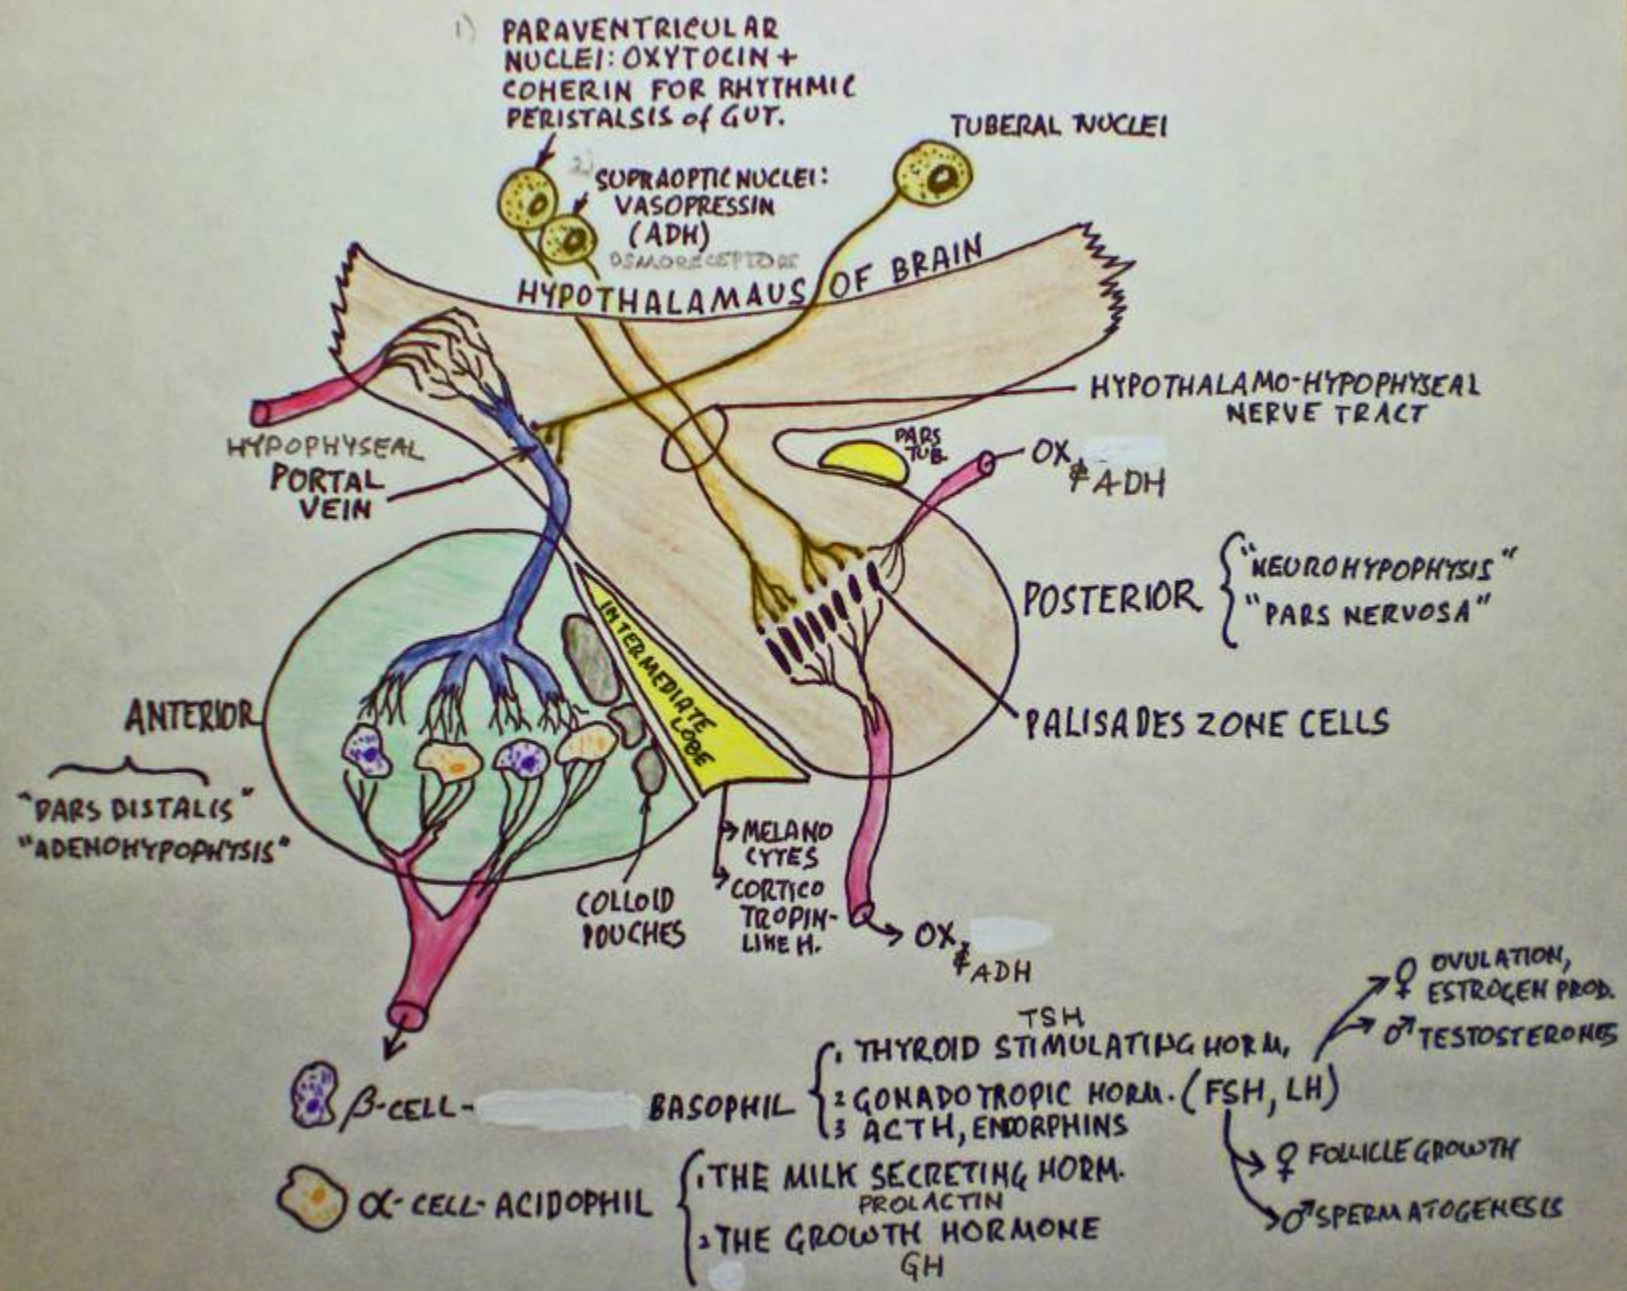 1) PARAVENTRICULAR
NUCLEI: OXYTOCIN +
COHERIN FOR RHYTHMIC
PERISTALSIS of GUT.
2) SUPRAOPTIC NUCLEI:
VASOPRESSIN
(ADH)
OSMORECEPTORS
TUBERAL NUCLEI
HYPOTHALAMAUS OF BRAIN
HYPOTHALAMO-HYPOPHYSEAL
NERVE TRACT
HYPOPHYSEAL
PORTAL
VEIN
PARS
TUB.
OX,
& ADH
POSTERIOR
"NEUROHYPOPHYSIS"
"PARS NERVOSA"
INTERMEDIATE
LOBE
PALISADES ZONE CELLS
ANTERIOR
"PARS DISTALIS"
"ADENOHYPOPHYSIS"
COLLOID
POUCHES
MELANO
CYTES
CORTICO
TROPIN-
LIKE H.
OX,
& ADH
♀ OVULATION,
ESTROGEN PROD.
♂ TESTOSTERONES
β-CELL- BASOPHIL
TSH
1 THYROID STIMULATING HORM,
2 GONADOTROPIC HORM. (FSH, LH)
3 ACTH, ENDORPHINS
♀ FOLLICLE GROWTH
♂ SPERMATOGENESIS
α-CELL- ACIDOPHIL
1 THE MILK SECRETING HORM.
PROLACTIN
2 THE GROWTH HORMONE
GH